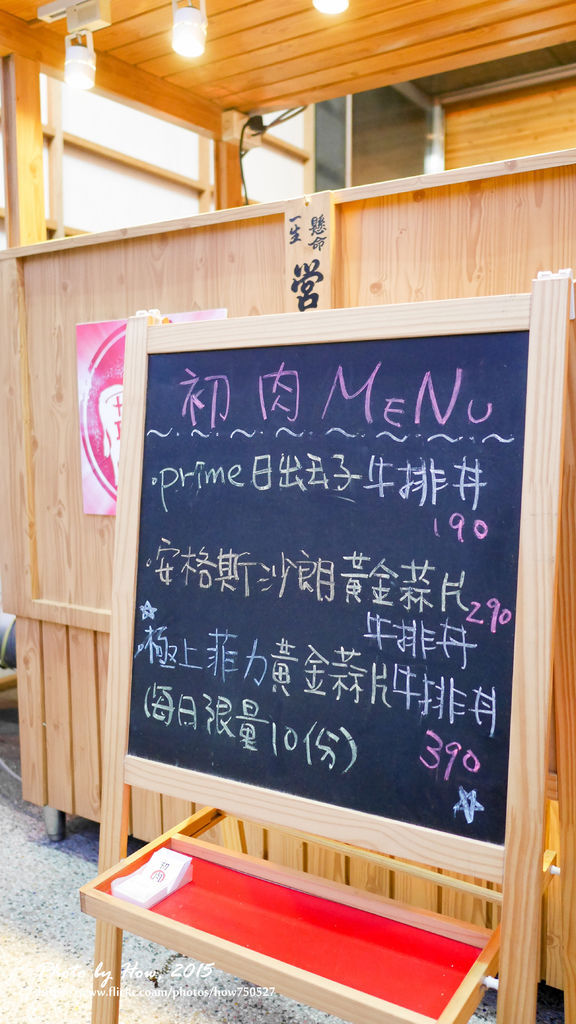 一生
懸命
営
初肉 MENU
·prime日出玉子牛排丼
190
·安格斯沙朗黃金蒜片
290
牛排丼
·極上菲力黃金蒜片牛排丼
(每日限量10份)
390
初肉
Photo by How, 2015
www.flickr.com/photos/how750527